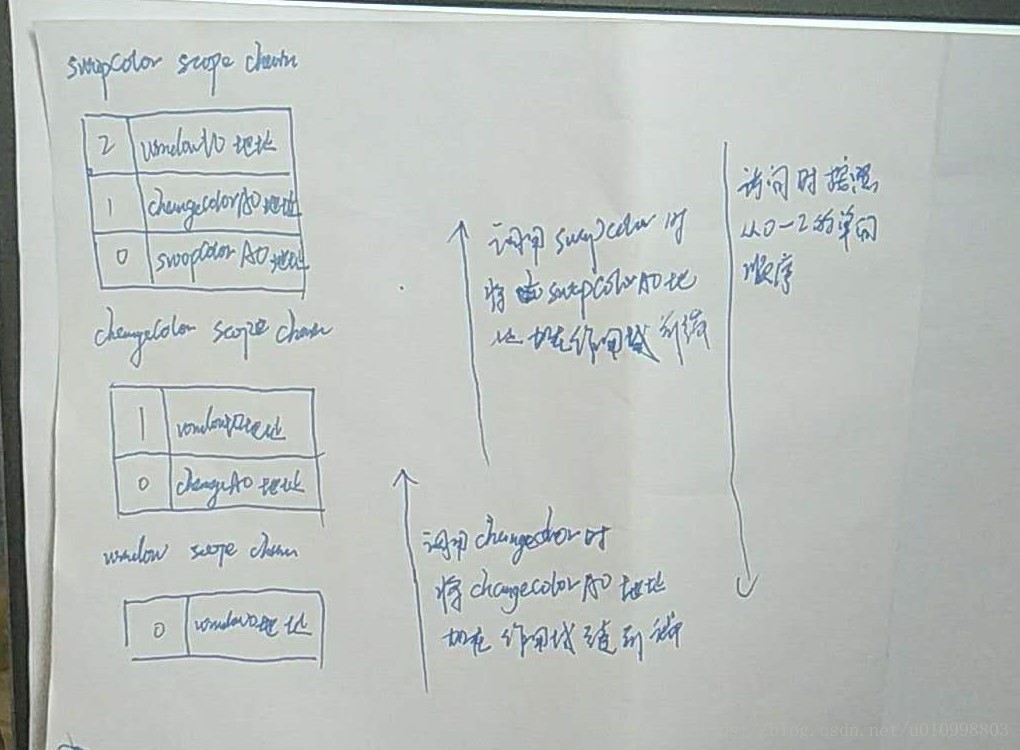 swapColor scope chain
2 windowVO地址
1 changecolorAO地址
0 swapColor AO地址
changeColor scope chain
1 windowVO地址
0 changeAO地址
window scope chain
0 windowVO地址
调用swapcolor时
将swapColorAO地
址加在作用域前端
调用changecolor时
将changecolorAO地址
加在作用域链前端
访问时按照
从0-2的单向
顺序
blog.csdn.net/u010998803